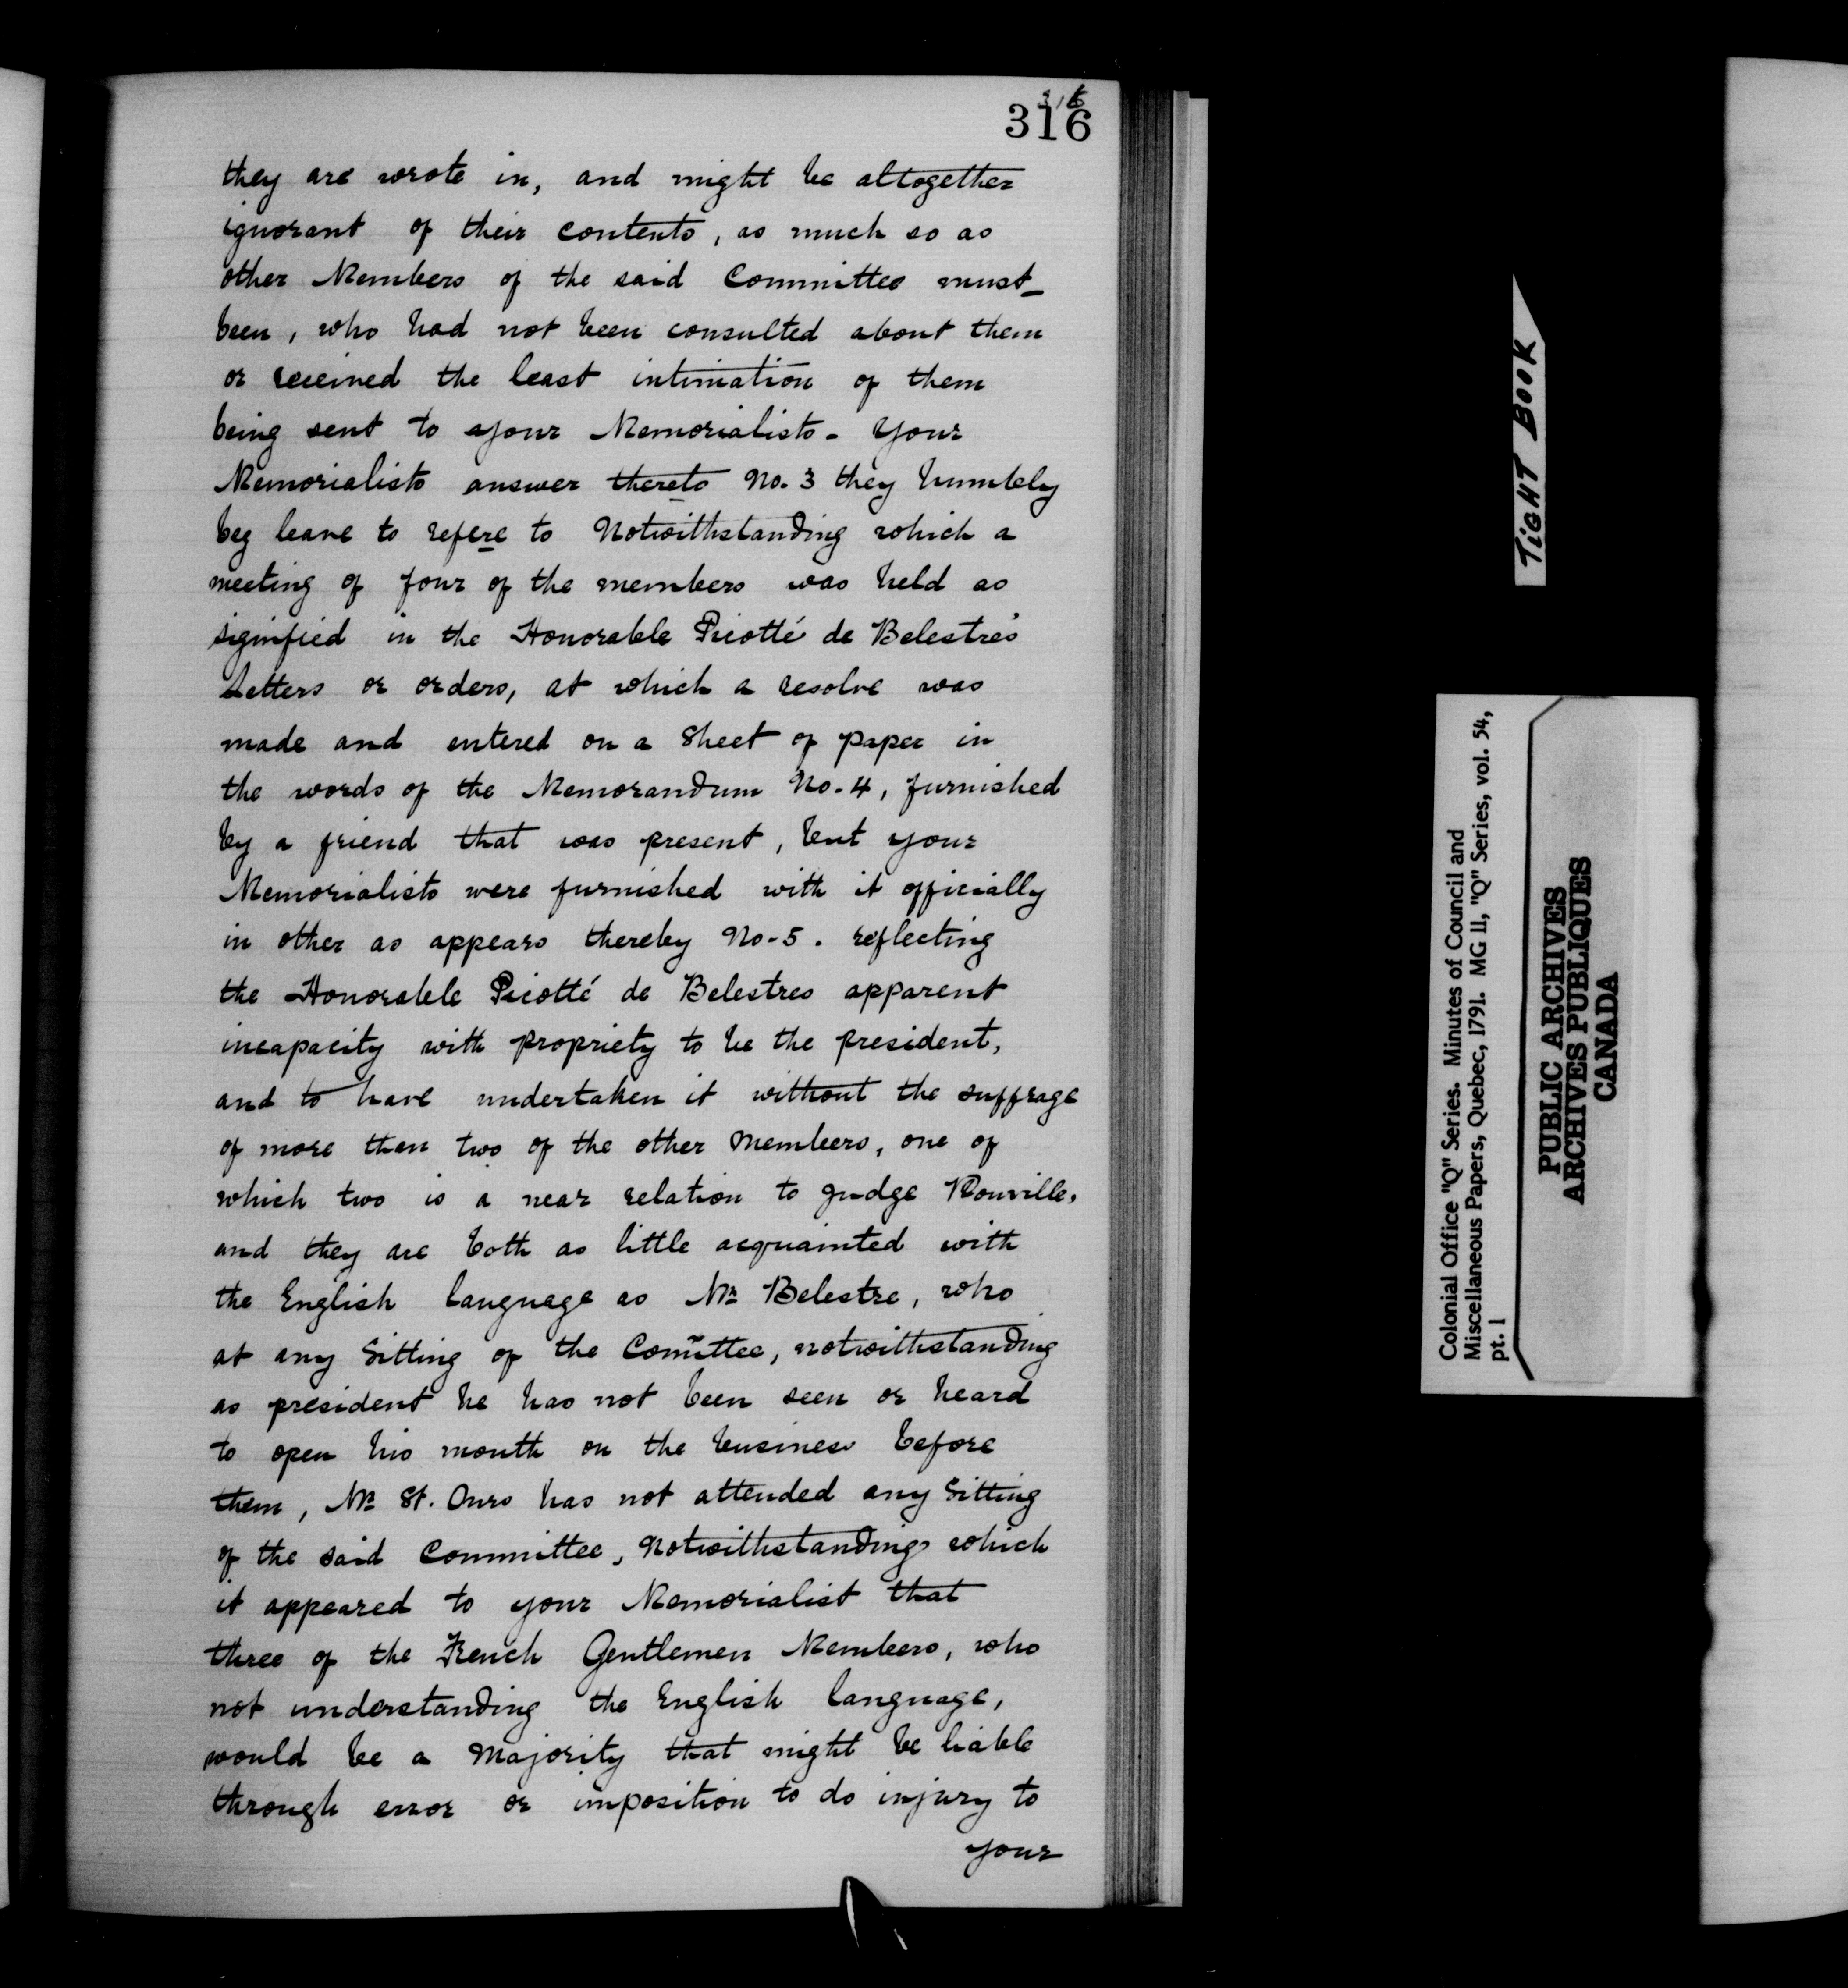 316
316
they are wrote in, and might be altogether
ignorant of their contents, as much so as
other Members of the said Committee must
been, who had not been consulted about them
or received the least intimation of them
being sent to your Memorialists - Your
Memorialists answer thereto No. 3 they humbly
beg leave to refere to Notwithstanding which a
meeting of four of the members was held as
signified in the Honorable Picotté de Belestre's
Letters or orders, at which a resolve was
made and entered on a Sheet of paper in
the words of the Memorandum No. 4, furnished
by a friend that was present, but your
Memorialists were furnished with it officially
in other as appears thereby No. 5. reflecting
the Honorable Picotté de Belestres apparent
incapacity with propriety to be the president,
and to have undertaken it without the suffrage
of more then two of the other Members, one of
which two is a near relation to Judge Rouville,
and they are both as little acquainted with
the English language as Mr Belestre, who
at any Sitting of the Comittee, notwithstanding
as president he has not been seen or heard
to open his mouth on the business before
them, Mr St. Ours has not attended any Sitting
of the said Committee, Notwithstanding which
it appeared to your Memorialist that
three of the French Gentlemen Members, who
not understanding the English language,
would be a Majority that might be liable
through error or imposition to do injury to
your
TIGHT BOOK
Colonial Office "Q" Series. Minutes of Council and
Miscellaneous Papers, Quebec, 1791. MG 11, "Q" Series, vol. 54,
pt. 1
PUBLIC ARCHIVES
ARCHIVES PUBLIQUES
CANADA